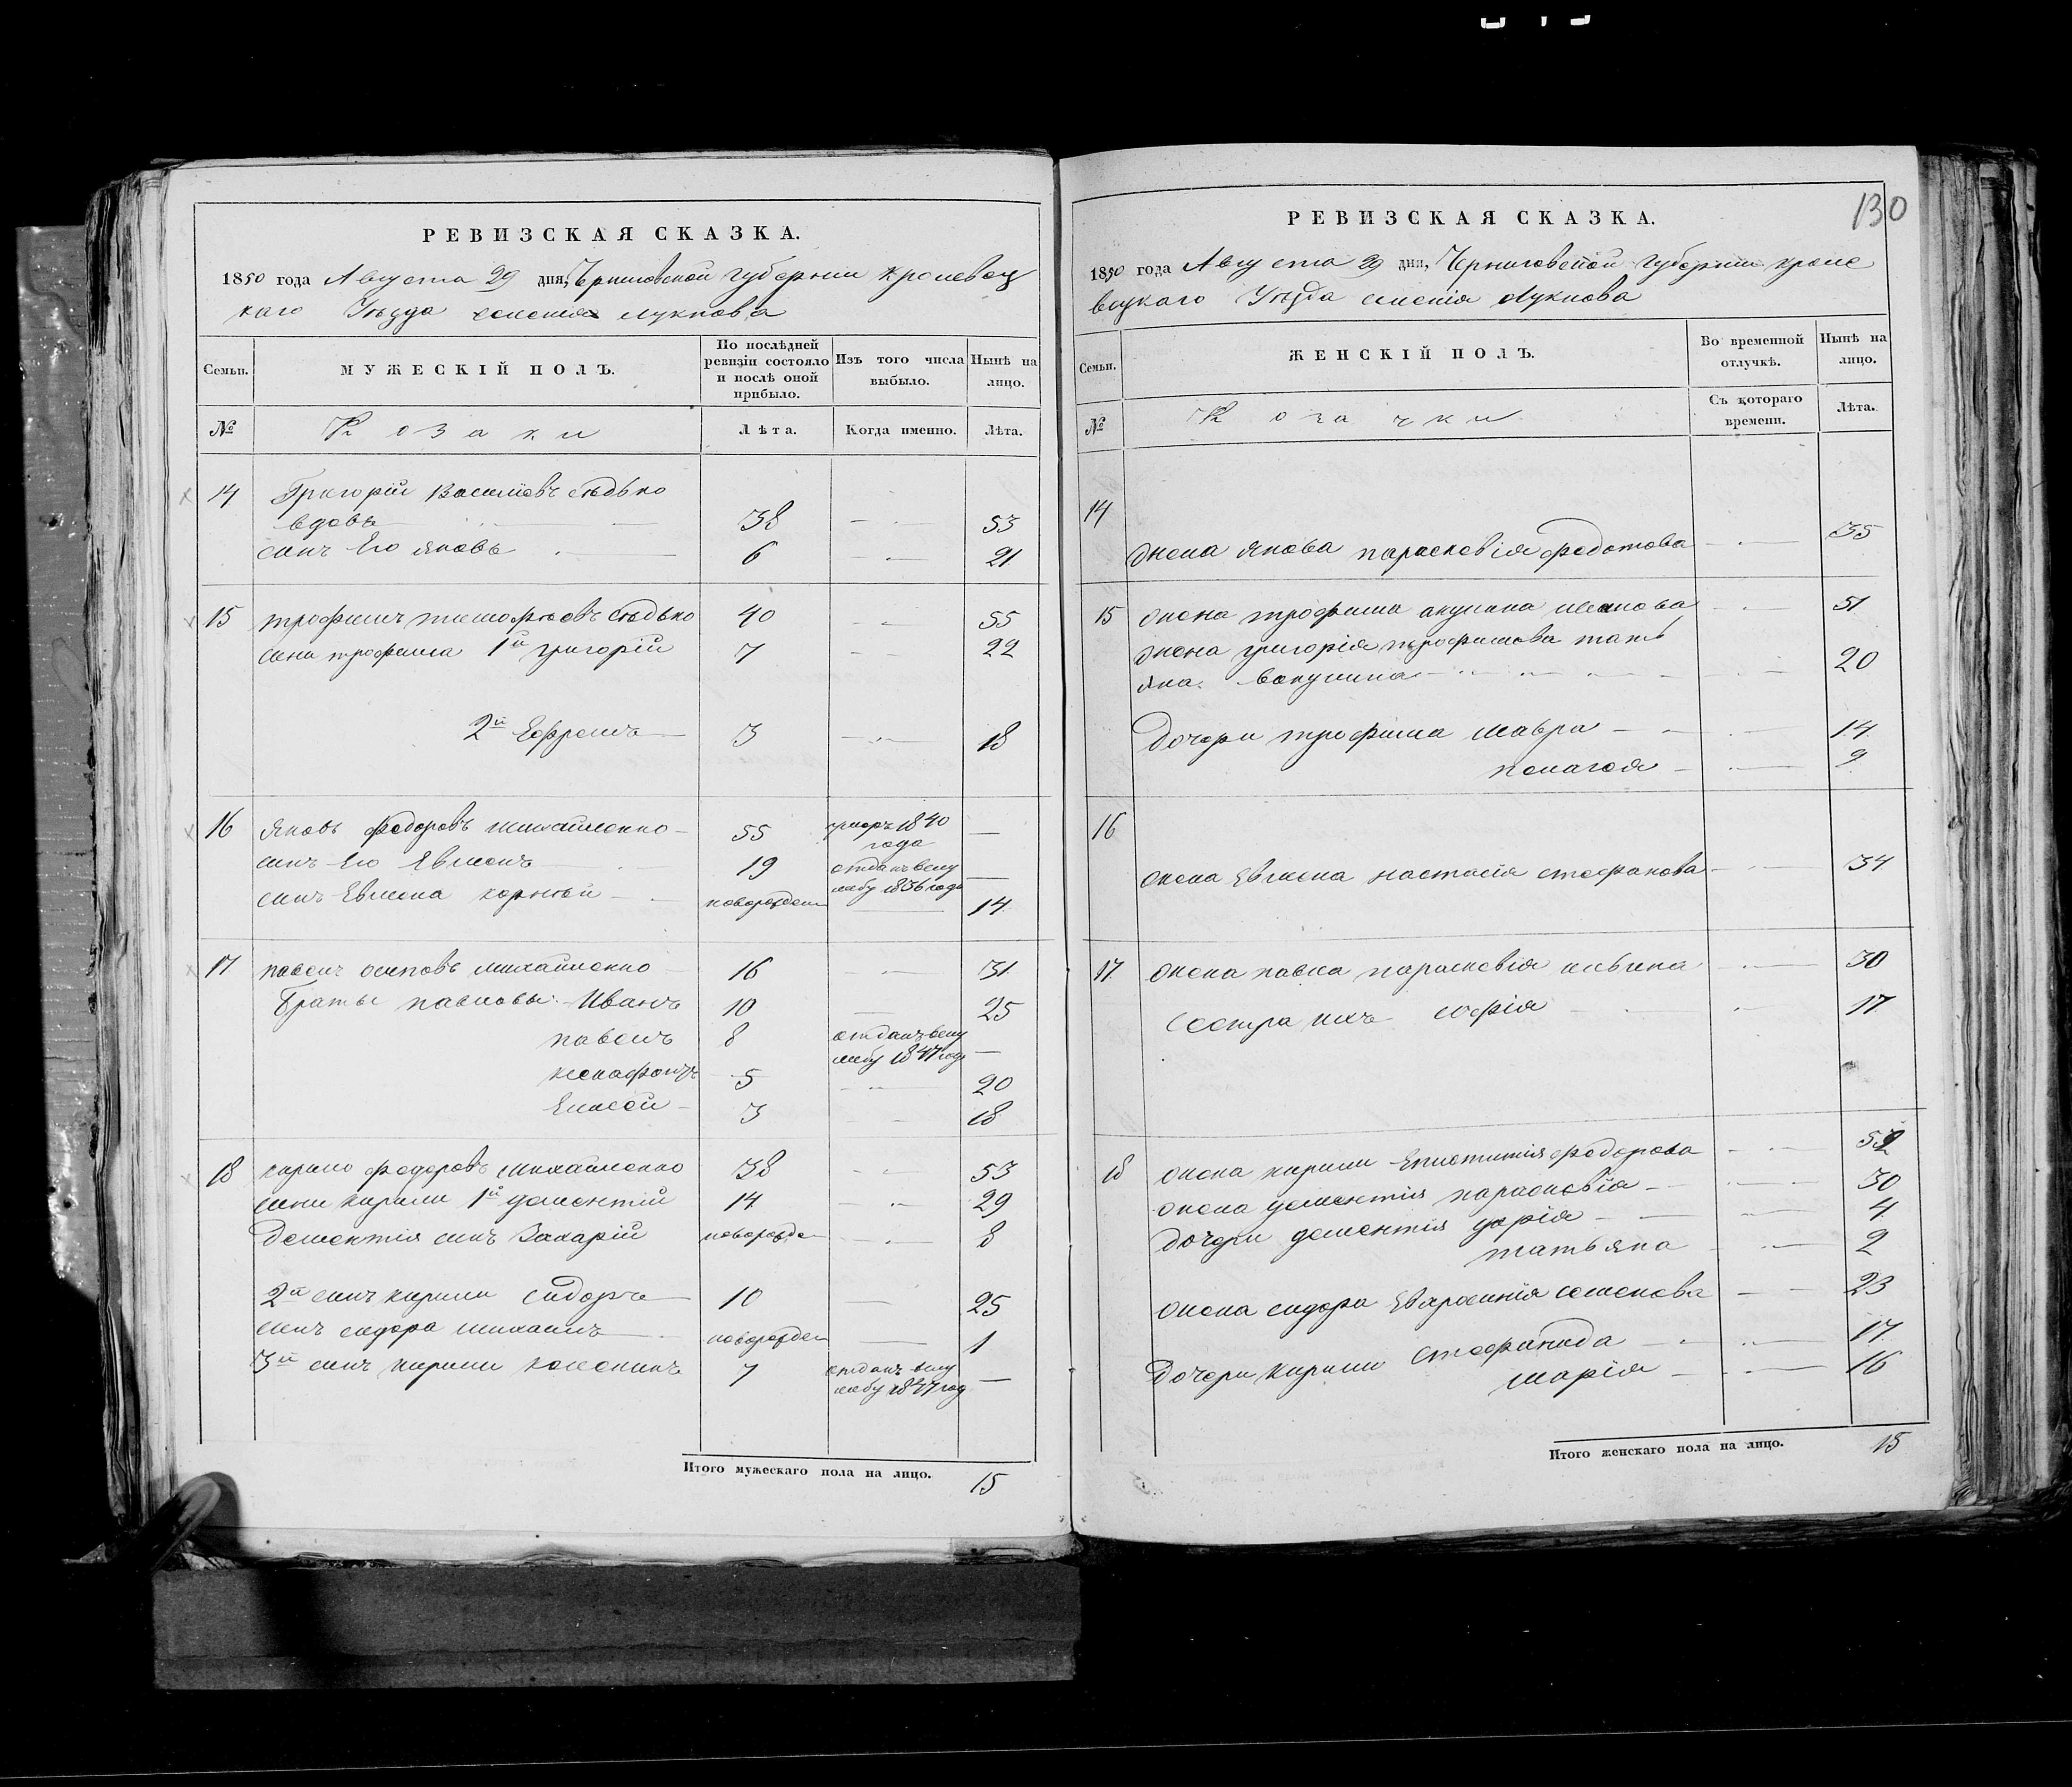 130
РЕВИЗСКАЯ СКАЗКА.
1850 года Августа 29 дня, Черниговской Губернии Кролевец
каго Уѣзда селения Лукнова
Семьи.
МУЖЕСКІЙ ПОЛЪ.
По послѣдней ревизіи состояло и послѣ оной прибыло.
Изъ того числа выбыло.
Нынѣ на лицо.
№
Козаки
Лѣта.
Когда именно.
Лѣта.
14 Григорій Василіевъ Сѣдько
вдовъ 38 53
синъ Его Яковъ 6 21
15 Трофимъ Тимофѣевъ Сѣдько 40 55
сини трофима 1й григорій 7 22
2й Ефремъ 3 18
16 Яковъ Федоровъ Михайленко 55 умеръ 1840 года —
синъ Его Евменъ 19 отданъ вслу жбу 1836 года —
синъ Евмена корнѣй новорожден 14
17 павелъ осиповъ михайленко 16 31
Браты павловы: Иванъ 10 25
павелъ 8 отданъ вслу жбу 1847 года —
ксенафонтъ 5 20
Елисей 3 18
18 кирило федоровъ Михайленко 38 53
сини кирили 1й дементій 14 29
Дементія синъ Захарій новорожден 8
2й синъ кирили Сидоръ 10 25
синъ сидора михаилъ новорожден 1
3й синъ кирили 7 отданъ вслу жбу 1847 год —
Итого мужескаго пола на лицо. 15
РЕВИЗСКАЯ СКАЗКА.
1850 года Августа 29 дня, Черниговской Губернии кроле
вецкаго Уѣзда селенія Лукнова
Семьи.
ЖЕНСКІЙ ПОЛЪ.
Во временной отлучкѣ.
Нынѣ на лицо.
№
Козачки
Съ котораго времени.
Лѣта.
14
Жена Якова параскевія федотова 35
15 жена трофима акулина иванова 51
жена григорія трофимова тать
яна вакулина 20
Дочери трофима мавра 14
пелагея 9
16
жена Евмена настасія стефанова 34
17 жена павла параскевія 30
Сестра ихъ софія 17
18 жена кирили Епистимія федорова 52
жена дементія параскевія 30
дочери дементія дарія 4
татьяна 2
жена сидора Евфросинія семенова 23
Дочери кирили Стефанида 17
марія 16
Итого женскаго пола на лицо. 15